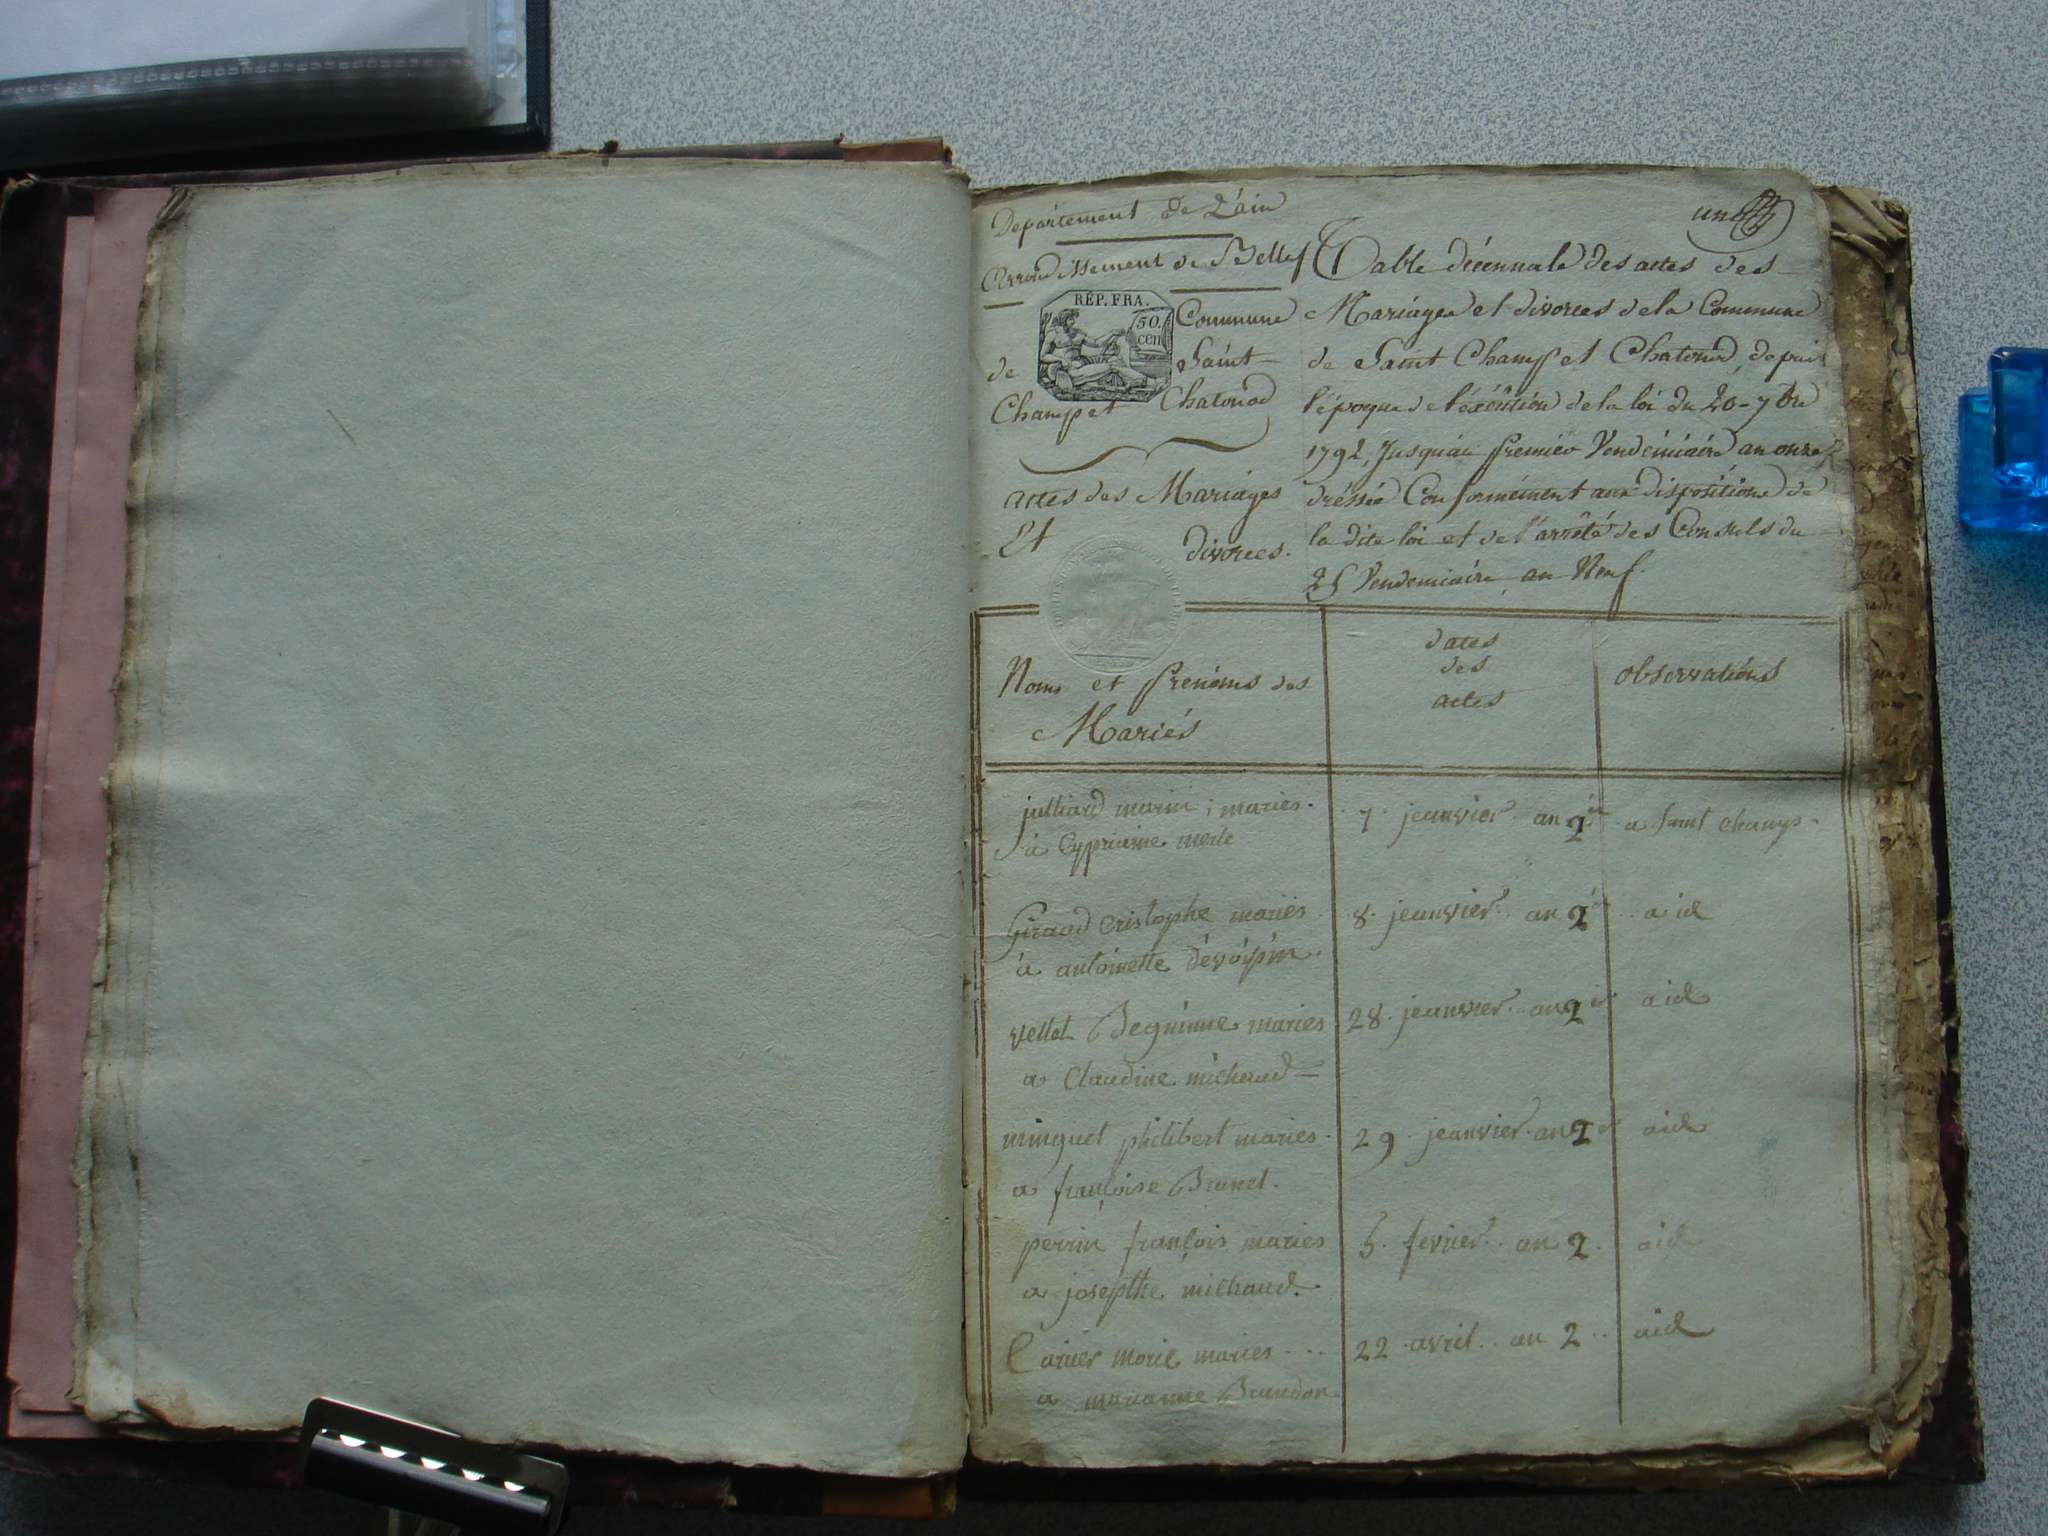 Département de L'ain
Arrondissement de Belley
RÉP. FRA.
50
cen
Commune
de Saint
Champ et Chatonod
actes des Mariages
Et divorces.
un
Table décennale des actes des
Mariages et divorces de la Commune
de Saint Champ et Chatonod, depuis
l'époque de l'éxécution de la loi du 20 7bre
1792, Jusqu'au premier Vendémiaire an onze,
dréssée Conformément aux dispositions de
la dite loi et de l'arrêté des Consuls du
25 Vendemiaire an Neuf.
Noms et Prénoms des
Mariés
dates
des
actes
observations
julliard marin; mariés.
à Cypriaine merle
7. jeanvier. an 2
a saint champ.
Giraud cristophe mariés
à antoinette dévoypin.
8. jeanvier. an 2
a id
vellet Beguinne mariés
a Claudine michaud
28. jeanvier. an 2
a id
minguet philibert mariés.
a françoise Brunet.
29. jeanvier. an 2
a id
perrin françois mariés
a josepthe michaud.
5. fevrier. an 2.
a id
Carrier morie mariés
a marianne Brandon
22 avril. an 2
a id